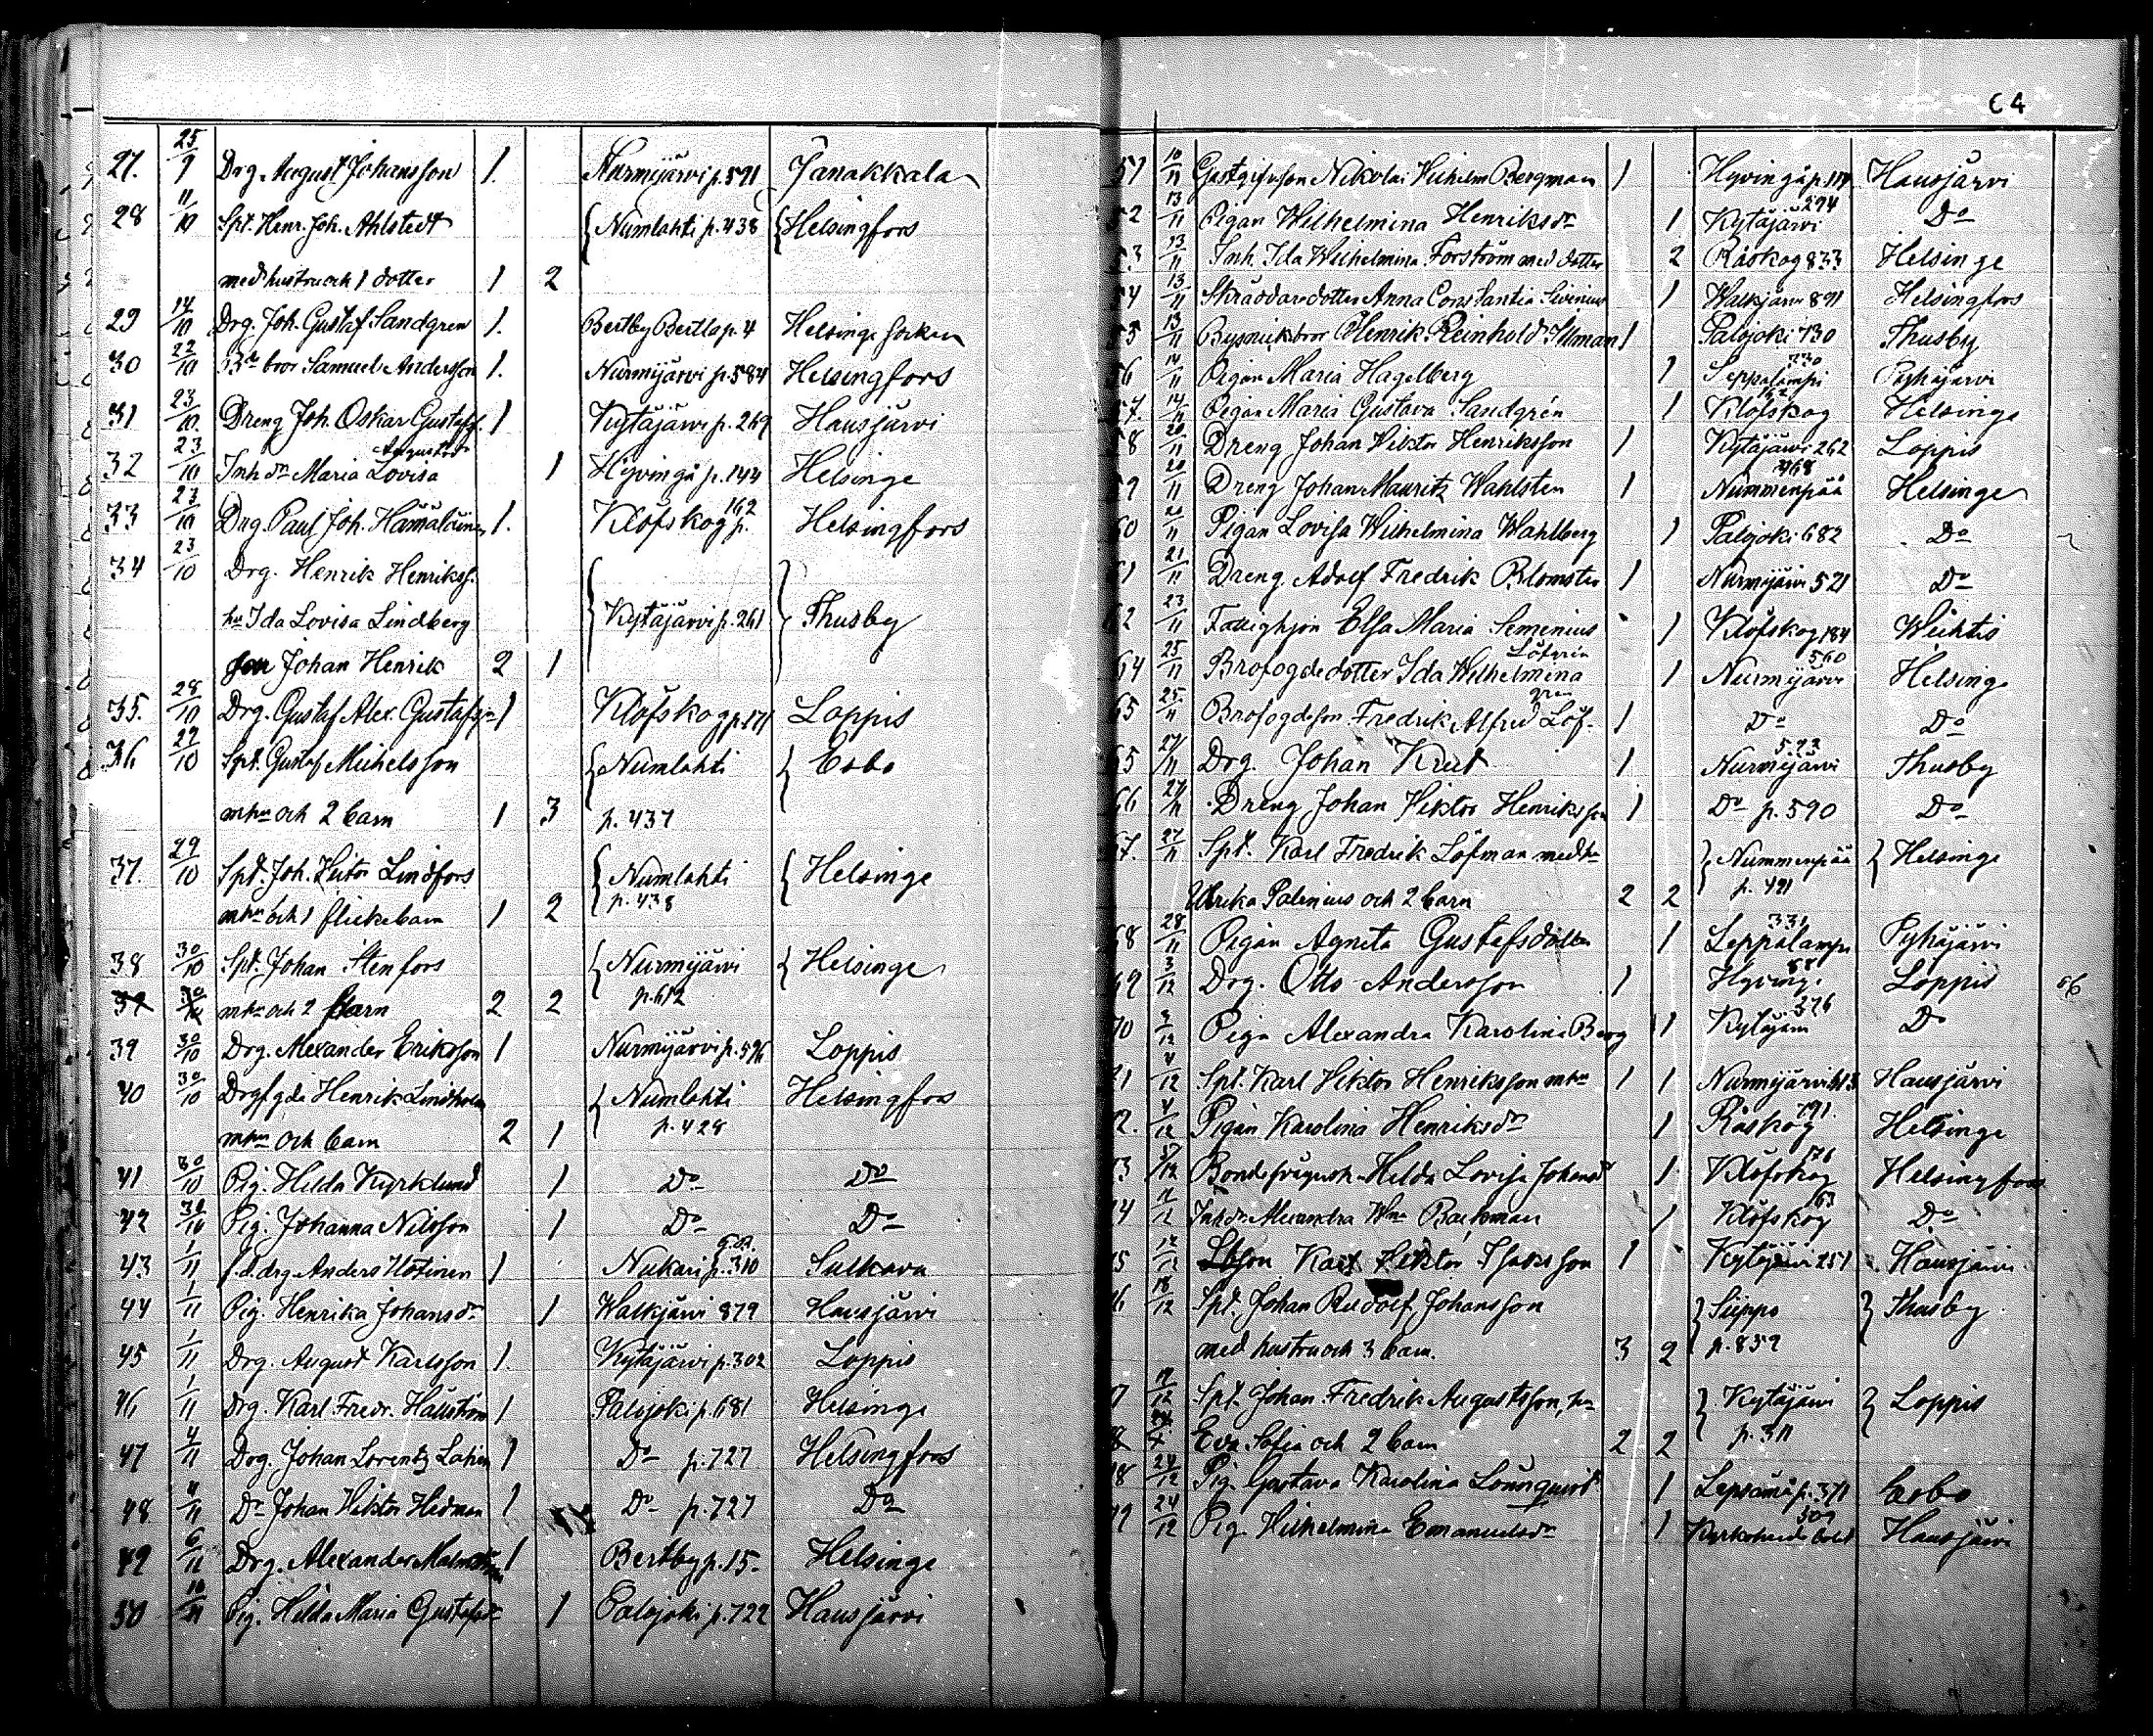 64
27. 25/9 Drg. August Johansson 1. Nurmijärvi p. 591 Janakkala
28 11/10 Spt. Henr. Joh. Ahlstedt Numlahti p. 438 Helsingfors
med hustru och 1 dotter 1 2
29 14/10 Drg. Joh. Gustaf Sandgren 1. Bertby Bertla p. 4 Helsinge socken
30 22/10 Bde bror Samuel Andersson 1. Nurmijärvi p. 584 Helsingfors
31 23/10 Dreng Joh. Oskar Gustafs. 1 Kytäjärvi p. 269 Hausjärvi
32 23/10 Inh dr Maria Lovisa Augustsdr 1 Hyvingä p. 144 Helsinge
33 23/10 Drg. Paul Joh. Hämäläinen 1. Klöfskog p. 162 Helsingfors
34 23/10 Drg. Henrik Henrikss.
hu Ida Lovisa Lindberg Kytäjärvi p. 261 Thusby
son Johan Henrik 2 1
35. 28/10 Drg. Gustaf Alex. Gustafss 1 Klöfskog p. 171 Loppis
36 29/10 Spt. Gustaf Michelsson Numlahti Esbo
m hu och 2 barn 1 3 p. 437
37. 29/10 Spt. Joh. Viktor Lindfors Numlahti Helsinge
m hu och 1 flickebarn 1 2 p. 438
38 30/10 Spt. Johan Stenfors Nurmijärvi Helsinge
39 30/10 m hu och 2 barn 2 2 p. 612
39 30/10 Drg. Alexander Eriksson 1 Nurmijärvi p. 596 Loppis
40 30/10 Drgfgde Henrik Lindholm Numlahti Helsingfors
m hu och barn 2 1 p. 428
41. 30/10 Pig. Hilda Kyrklund 1 Do Do
42 30/10 Pig. Johanna Nilsson 1 Do Do
43 1/11 f.d. drg Anders Hotinen 1 Nukari p. 310 Sulkava
44 1/11 Pig. Henrika Johansdr 1 Walkjärvi 879 Hausjärvi
45 1/11 Drg. August Karlsson 1. Kytäjärvi p. 302 Loppis
46 1/11 Drg. Karl Fredr. Hallström 1 Palojoki p. 681 Helsinge
47 4/11 Drg. Johan Lorentz Latin 1 Do p. 727 Helsingfors
48 4/11 Do Johan Viktor Hedman 1 Do p. 727 Do
49 6/11 Drg. Alexander Malmström 1 Bertby p. 15 Helsinge
50 10/11 Pig. Hilda Maria Gustafsdr 1 Palojoki p. 722 Hausjärvi
51 10/11 Gästgifvson Nikolai Wilhelm Bergman 1 Hyvingä p. 114 Hausjärvi
52 13/11 Pigan Wilhelmina Henriksdr 1 Kytäjärvi 294 Do
53 13/11 Inh. Ida Wilhelmina Forström med dotter 2 Råskog 833 Helsinge
54 13/11 Skräddaredotter Anna Constantia 1 Walkjärvi 891 Helsingfors
55 13/11 Henrik Reinhold Illman 1 Palojoki 730 Thusby
56 14/11 Pigan Maria Hagelberg 1 Leppälampi 330 Pyhäjärvi
57. 14/11 Pigan Maria Gustava Sandgrén 1 Klöfskog Helsinge
58 20/11 Dreng Johan Viktor Henriksson 1 Kytäjärvi 262 Loppis
59 20/11 Dreng Johan Mauritz Wahlsten 1 Nummenpää 468 Helsinge
60 20/11 Pigan Lovisa Wilhelmina Wahlberg 1 Palojoki 682 Do
61 21/11 Dreng Adolf Fredrik Blomster 1 Nurmijärvi 521 Do
62 23/11 Fattighjon Elsa Maria Semenius 1 Klöfskog 184 Wichtis
64 25/11 Brofogdedotter Ida Wilhelmina Löfgrén 1 Nurmijärvi 560 Helsinge
65 25/11 Brofogdeson Fredrik Alfred Löfgren 1 Do Do
65 27/11 Drg. Johan Krut 1 Nurmijärvi 593 Thusby
66 27/11 Dreng Johan Viktor Henriksson 1 Do p. 590 Do
67. 27/11 Spt. Karl Fredrik Löfman med hu Nummenpää Helsinge
Ulrika Palenius och 2 barn 2 2 p. 491
68 28/11 Pigan Agneta Gustafsdotter 1 Leppälampi 331 Pyhäjärvi
69 3/12 Drg. Otto Andersson 1 Hyving. 88 Loppis
70 3/12 Piga Alexandra Karolina Berg 1 Kytäjärvi 276 Do
71 4/12 Spt. Karl Viktor Henriksson m hu 1 1 Nurmijärvi 613 Hausjärvi
72. 4/12 Pigan Karolina Henriksdr 1 Råskog 791. Helsinge
73 5/12 Hilda Lovisa Johansdr 1 Klöfskog 176 Helsingfors
74 11/12 Inh dr Alexandra Wma Backman 1 Klöfskog 63 Do
75 12/12 Karl Viktor Isaksson 1 Kytäjärvi 251 Hausjärvi
76 18/12 Spt. Johan Rudolf Johansson Siippo Thusby
med hustru och 3 barn. 3 2 p. 859
77 19/12 Spt. Johan Fredrik Augustsson, hu Kytäjärvi Loppis
Eva Sofia och 2 barn 2 2 p. 311
78 24/12 Pig. Gustava Karolina Lönnquist 1 Lepsämä p. 371 Esbo
79 24/12 Pig. Wilhelmina Emanuelsdr 1 509 Hausjärvi